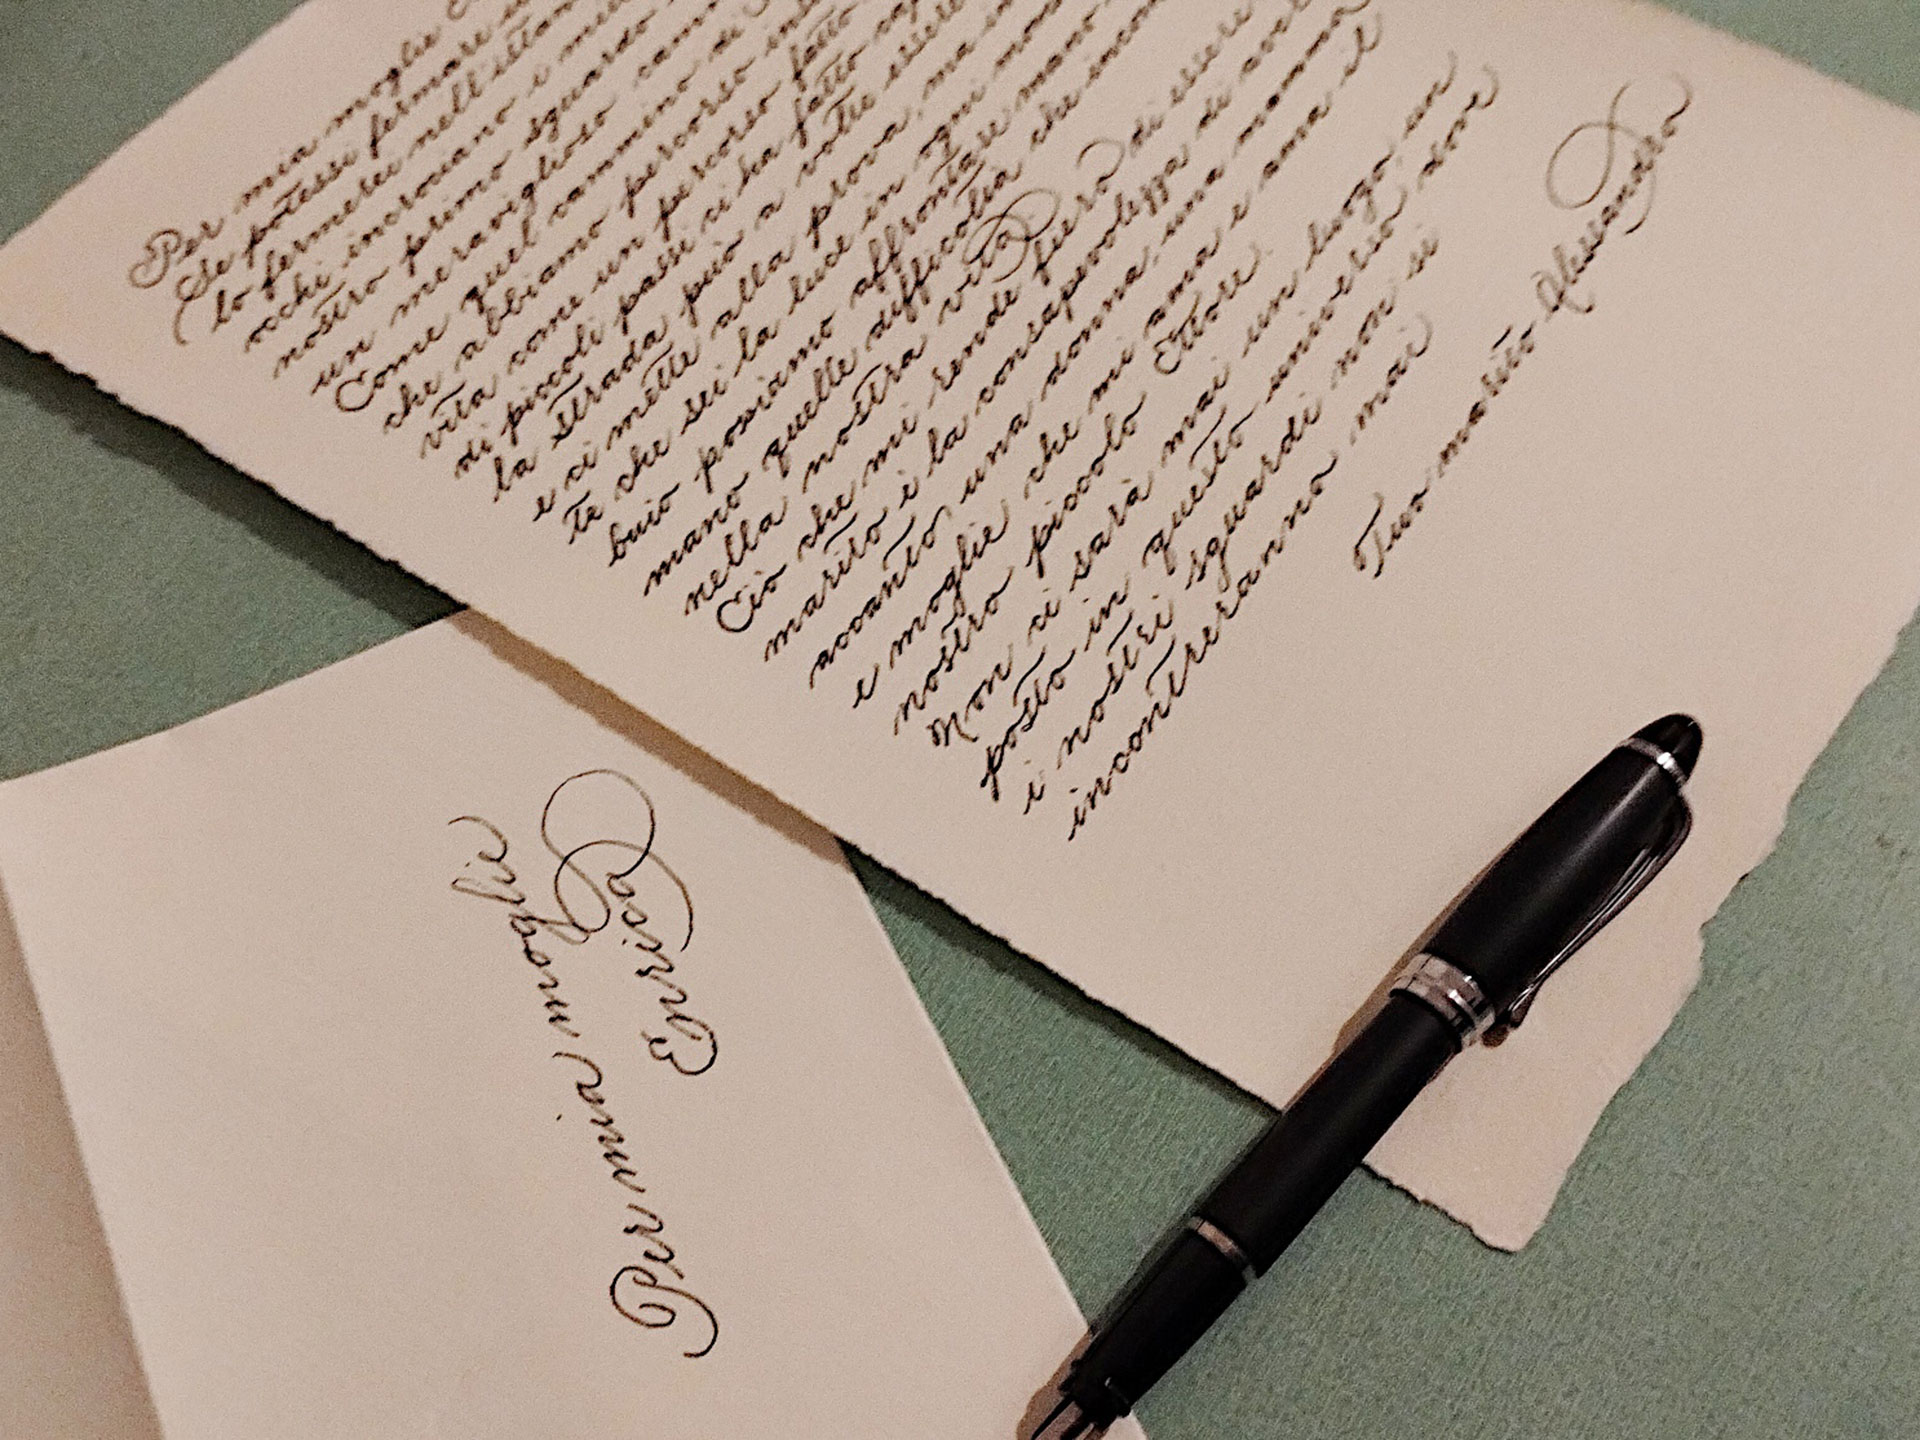 Per mia moglie
Se potessi fermare
lo fermerei nell'istante
occhi incrociano i miei
nostro primo sguardo
un meraviglioso cammino
Come quel cammino di
che abbiamo percorso
vita come un percorso fatto
di piccoli passi ci ha fatto
la strada può a volte essere
e ci mette alla prova, ma
te che sei la luce in ogni
buio possiamo affrontare mano
mano quelle difficoltà che
nella nostra vita.
Ciò che mi rende fiero di essere
marito è la consapevolezza di
accanto, una donna, una mamma
e moglie che mi ama e ama il
nostro piccolo Ettore.
Non ci sarà mai un luogo, un
posto in questo universo dove
i nostri sguardi non si
incontreranno mai
Tuo marito Alessandro
Per mia moglie
Erica